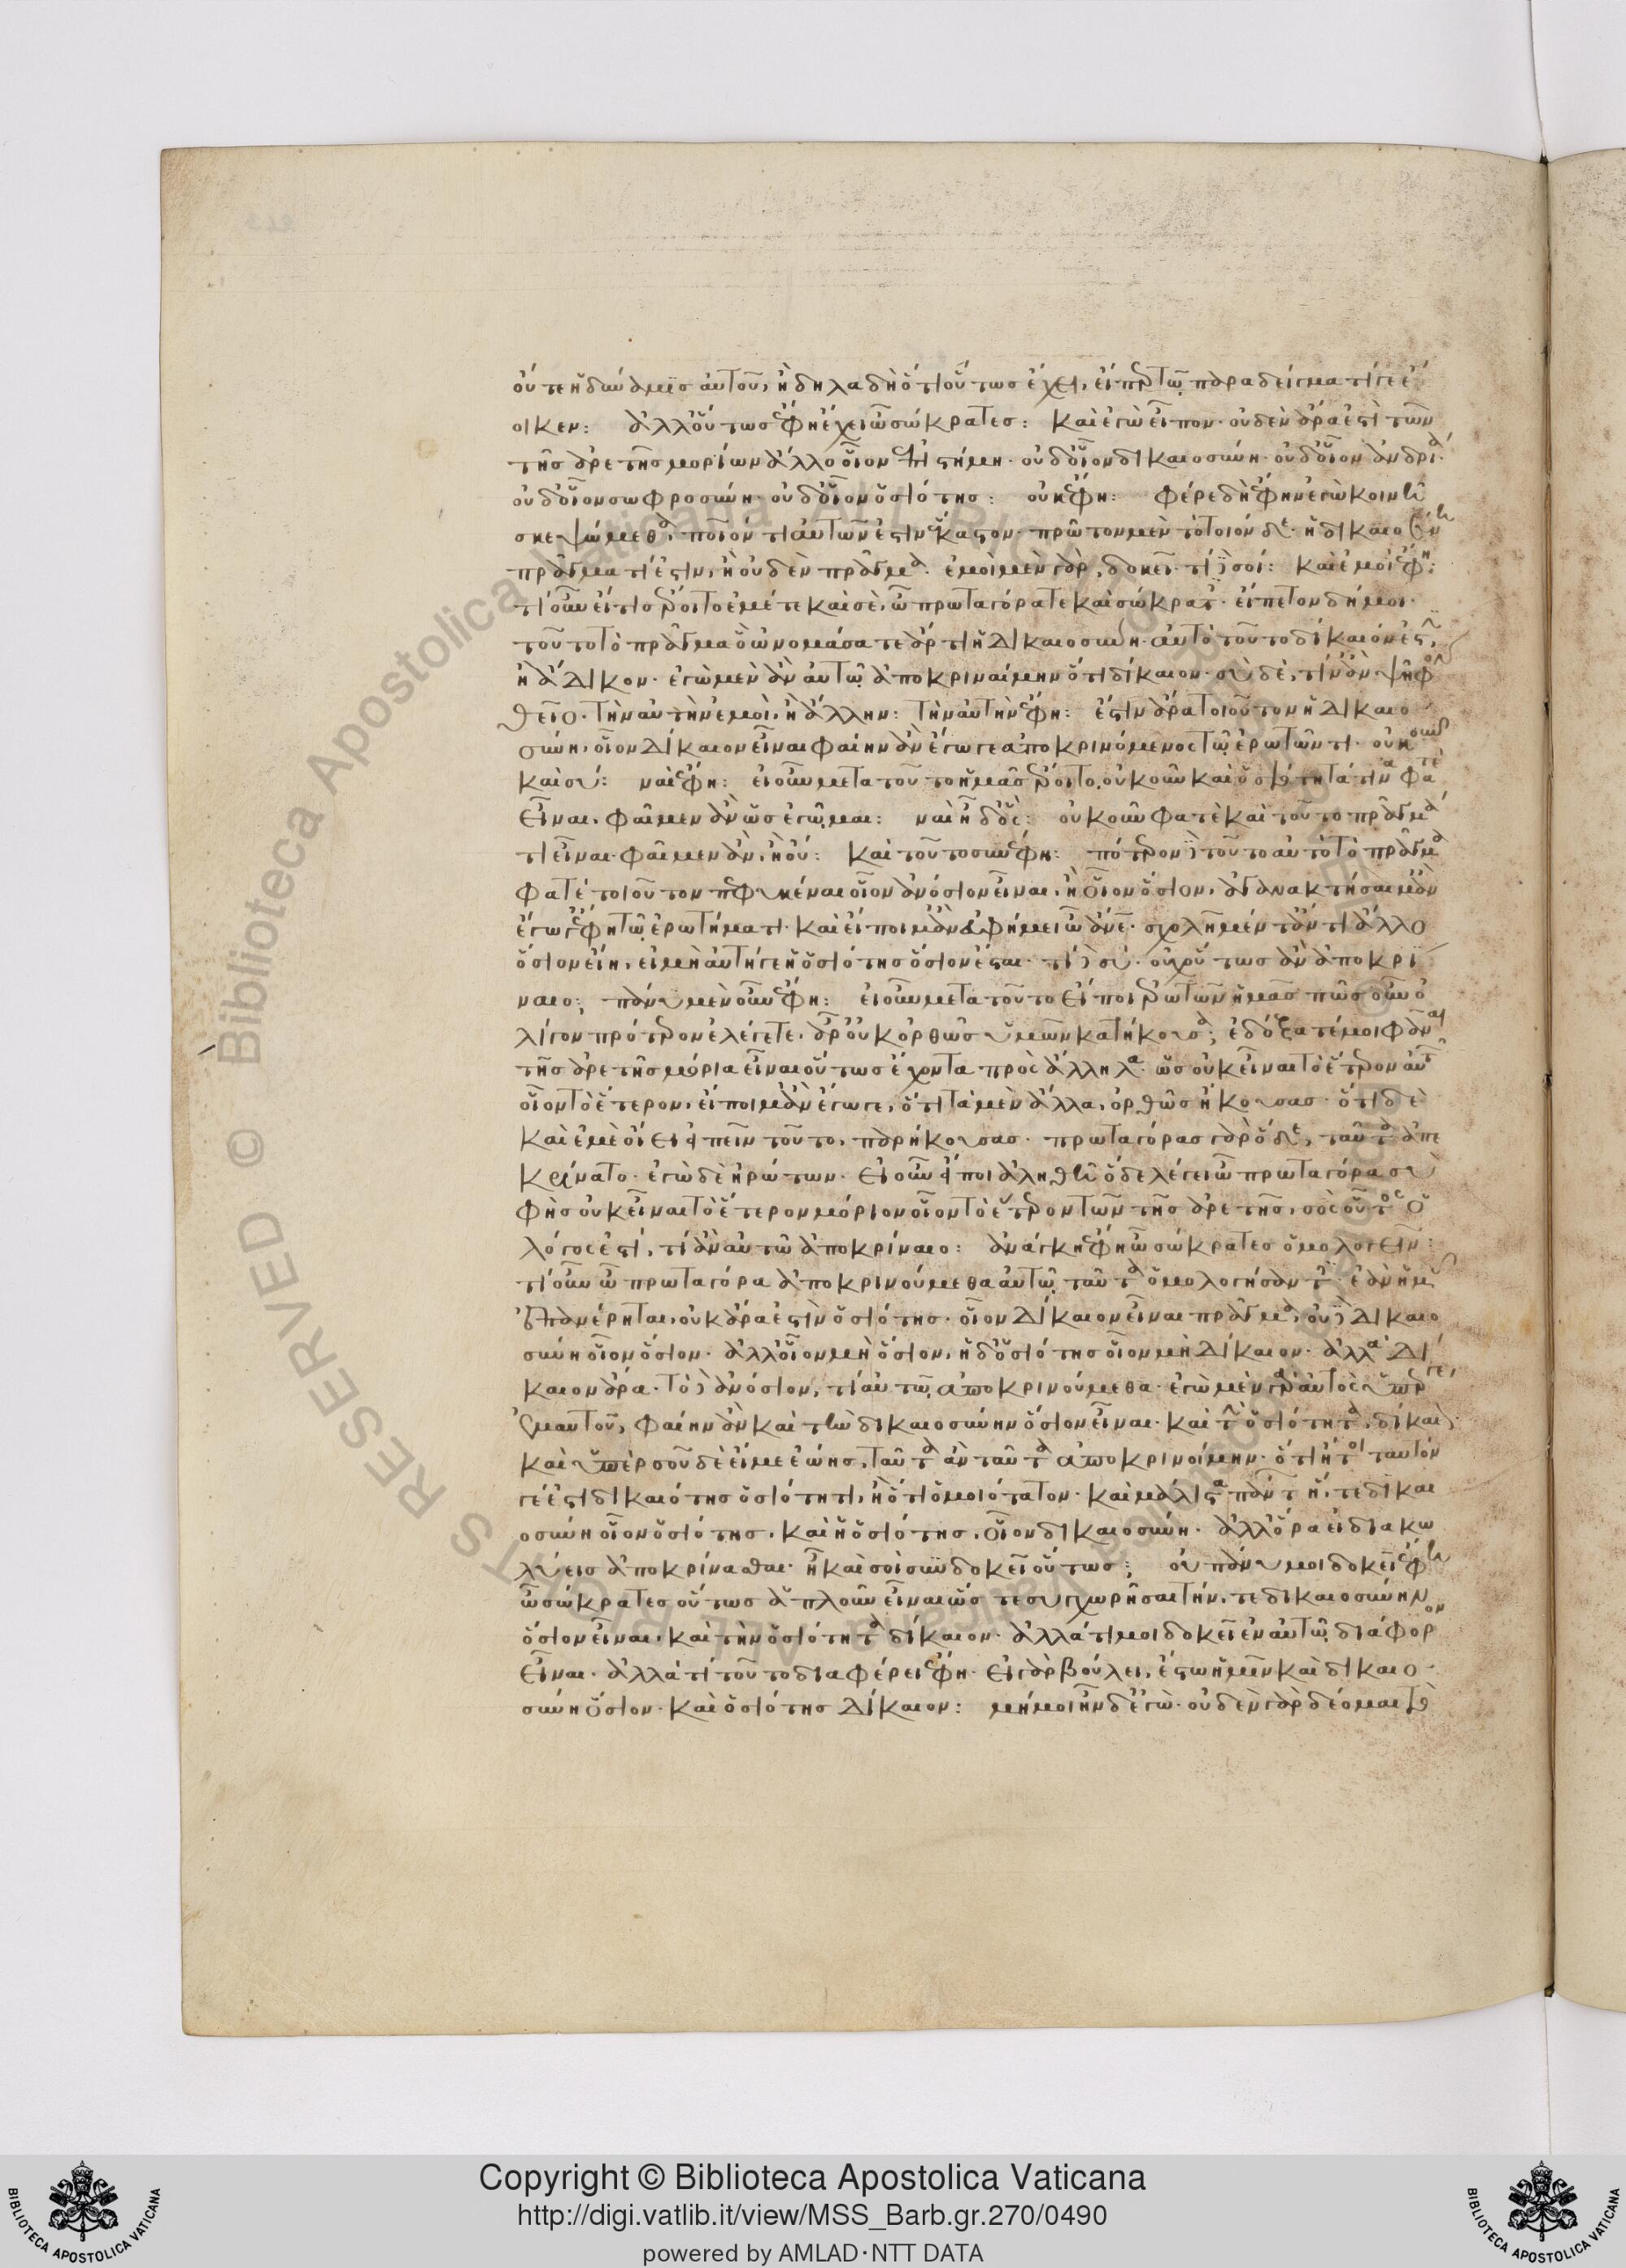 οὔτε ἡ δύναμις αὐτοῦ, ἢ δηλαδὴ ὅτι οὕτως ἔχει, εἰπερ τῶ παραδείγματί γε ἔ
οικεν: ἀλλ' οὕτως ἔφη ἔχει ὦ σώκρατες: καὶ ἐγὼ εἶπον· οὐδὲν ἄρα ἐστὶ τῶν
τῆς ἀρετῆς μορίων ἄλλο οἷον ἐπιστήμη· οὐδ' οἷον δικαιοσύνη· οὐδ' οἷον ἀνδρία·
οὐδ' οἷον σωφροσύνη· οὐδ' οἷον ὁσιότης: οὐκ ἔφη: φέρε δὴ ἔφην ἐγὼ κοινῆ
σκεψώμεθα, ποῖόν τι αὐτῶν ἐστὶν ἕκαστον· πρῶτον μὲν τὸ τοιόνδε· ἡ δικαιοσύνη
πρᾶγμα τί ἐστιν, ἢ οὐδὲν πρᾶγμα· ἐμοὶ μὲν γὰρ δοκεῖ· τί δὲ σοί: καὶ ἐμοὶ ἔφη:
τί οὖν εἴ τις ἔροιτο ἐμέ τε καὶ σὲ, ὦ πρωταγόρα τε καὶ σώκρατες· εἴπετον δή μοι·
τοῦτο τὸ πρᾶγμα ὃ ὠνομάσατε ἄρτι ἡ δικαιοσύνη· αὐτὸ τοῦτο δίκαιόν ἐστιν,
ἢ ἄδικον· ἐγὼ μὲν ἂν αὐτῶ ἀποκριναίμην ὅτι δίκαιον· σὺ δὲ, τίν' ἂν ψῆφον
θεῖο· τὴν αὐτὴν ἐμοὶ, ἢ ἄλλην: τὴν αὐτὴν ἔφη: ἔστιν ἄρα τοιοῦτον ἡ δικαιο
σύνη, οἷον δίκαιον εἶναι φαίην ἂν ἔγωγε ἀποκρινόμενος τῶ ἐρωτῶντι· οὐκοῦν
καὶ σύ: ναὶ ἔφη: εἰ οὖν μετὰ τοῦτο ἡμᾶς ἔροιτο, οὐκοῦν καὶ ὁσιότητά τινά φατε
εἶναι, φαῖμεν ἂν ὡς ἐγῶμαι: ναὶ ἦ δ' ὅς: οὐκοῦν φατὲ καὶ τοῦτο πρᾶγμά
τι εἶναι· φαῖμεν ἂν, ἢ οὔ: καὶ τοῦτο συνέφη: πότερον δὲ τοῦτο αὐτὸ τὸ πρᾶγμα
φατὲ τοιοῦτον πεφυκέναι οἷον ἀνόσιον εἶναι, ἢ οἷον ὅσιον, ἀγανακτήσαιμ' ἂν
ἔγωγ' ἔφη τῶ ἐρωτήματι· καὶ εἴποιμ' ἂν εὐφήμει ὦ ἄνθρωπε· σχολῆ μέν τ' ἄν τι ἄλλο
ὅσιον εἴη, εἰ μὴ αὐτή γε ἡ ὁσιότης ὅσιον ἔσται· τί δὲ σύ· οὐχ οὕτως ἂν ἀποκρί
ναιο; πάνυ μὲν οὖν ἔφη: εἰ οὖν μετὰ τοῦτο εἴποι ἐρωτῶν ἡμᾶς πῶς οὖν ὀ
λίγον πρότερον ἐλέγετε· ἆρ' οὐκ ὀρθῶς ὑμῶν κατήκουσα; ἐδόξατέ μοι φάναι
τῆς ἀρετῆς μόρια εἶναι οὕτως ἔχοντα πρὸς ἄλληλα· ὡς οὐκ εἶναι τὸ ἕτερον αὐτῶν
οἷον τὸ ἕτερον, εἴποιμ' ἂν ἔγωγε, ὅτι τὰ μὲν ἄλλα, ὀρθῶς ἤκουσας· ὅτι δὲ
καὶ ἐμὲ οἴει εἰπεῖν τοῦτο, παρήκουσας· πρωταγόρας γὰρ ὅδε, ταῦτα ἀπε
κρίνατο· ἐγὼ δὲ ἠρώτων· εἰ οὖν εἴποι ἀληθῆ ὅδε λέγει ὦ πρωταγόρα σὺ
φὴς οὐκ εἶναι τὸ ἕτερον μόριον οἷον τὸ ἕτερον τῶν τῆς ἀρετῆς, σὸς οὗτος ὁ
λόγος ἐστί, τί ἂν αὐτῶ ἀποκρίναιο: ἀνάγκη ἔφη ὦ σώκρατες ὁμολογεῖν:
τί οὖν ὦ πρωταγόρα ἀποκρινούμεθα αὐτῶ ταῦτα ὁμολογήσαντες· ἐὰν ἡμᾶς
ἐπανέρηται, οὐκ ἄρα ἐστὶν ὁσιότης· οἷον δίκαιον εἶναι πρᾶγμα, οὐδὲ δικαιο
σύνη οἷον ὅσιον· ἀλλ' οἷον μὴ ὅσιον, ἡ δ' ὁσιότης οἷον μὴ δίκαιον· ἀλλὰ δί
καιον ἄρα· τὸ δὲ ἀνόσιον, τί αὐτῶ ἀποκρινούμεθα· ἐγὼ μὲν γὰρ αὐτὸς ὑπέρ γε
ἐμαυτοῦ, φαίην ἂν καὶ τὴν δικαιοσύνην ὅσιον εἶναι· καὶ τὴν ὁσιότητα, δίκαιον·
καὶ ὑπὲρ σοῦ δὲ εἴ με ἐώης, ταῦτα ἂν ταῦτα ἀποκρινοίμην· ὅτι ἤτοι ταυτόν
γέ ἐστι δικαιότης ὁσιότητι, ἢ ὅτι ὁμοιότατον· καὶ μάλιστα πάντων ἥ, τε δικαι
οσύνη οἷον ὁσιότης, καὶ ἡ ὁσιότης, οἷον δικαιοσύνη· ἀλλ' ὅρα εἰ διακω
λύεις ἀποκρίνασθαι· ἢ καὶ σοὶ συνδοκεῖ οὕτως; οὐ πάνυ μοι δοκεῖ ἔφη
ὦ σώκρατες οὕτως ἁπλοῦν εἶναι ὥστε συγχωρῆσαι τήν, τε δικαιοσύνην
ὅσιον εἶναι, καὶ τὴν ὁσιότητα δίκαιον· ἀλλά τι μοι δοκεῖ ἐν αὐτῶ διάφορον
εἶναι· ἀλλὰ τί τοῦτο διαφέρει ἔφη· εἰ γὰρ βούλει, ἔστω ἡμῖν καὶ δικαιο
σύνη ὅσιον· καὶ ὁσιότης δίκαιον: μή μοι ἦν δ' ἐγώ· οὐδὲν γὰρ δέομαι τὸ
Copyright © Biblioteca Apostolica Vaticana
http://digi.vatlib.it/view/MSS_Barb.gr.270/0490
powered by AMLAD·NTT DATA